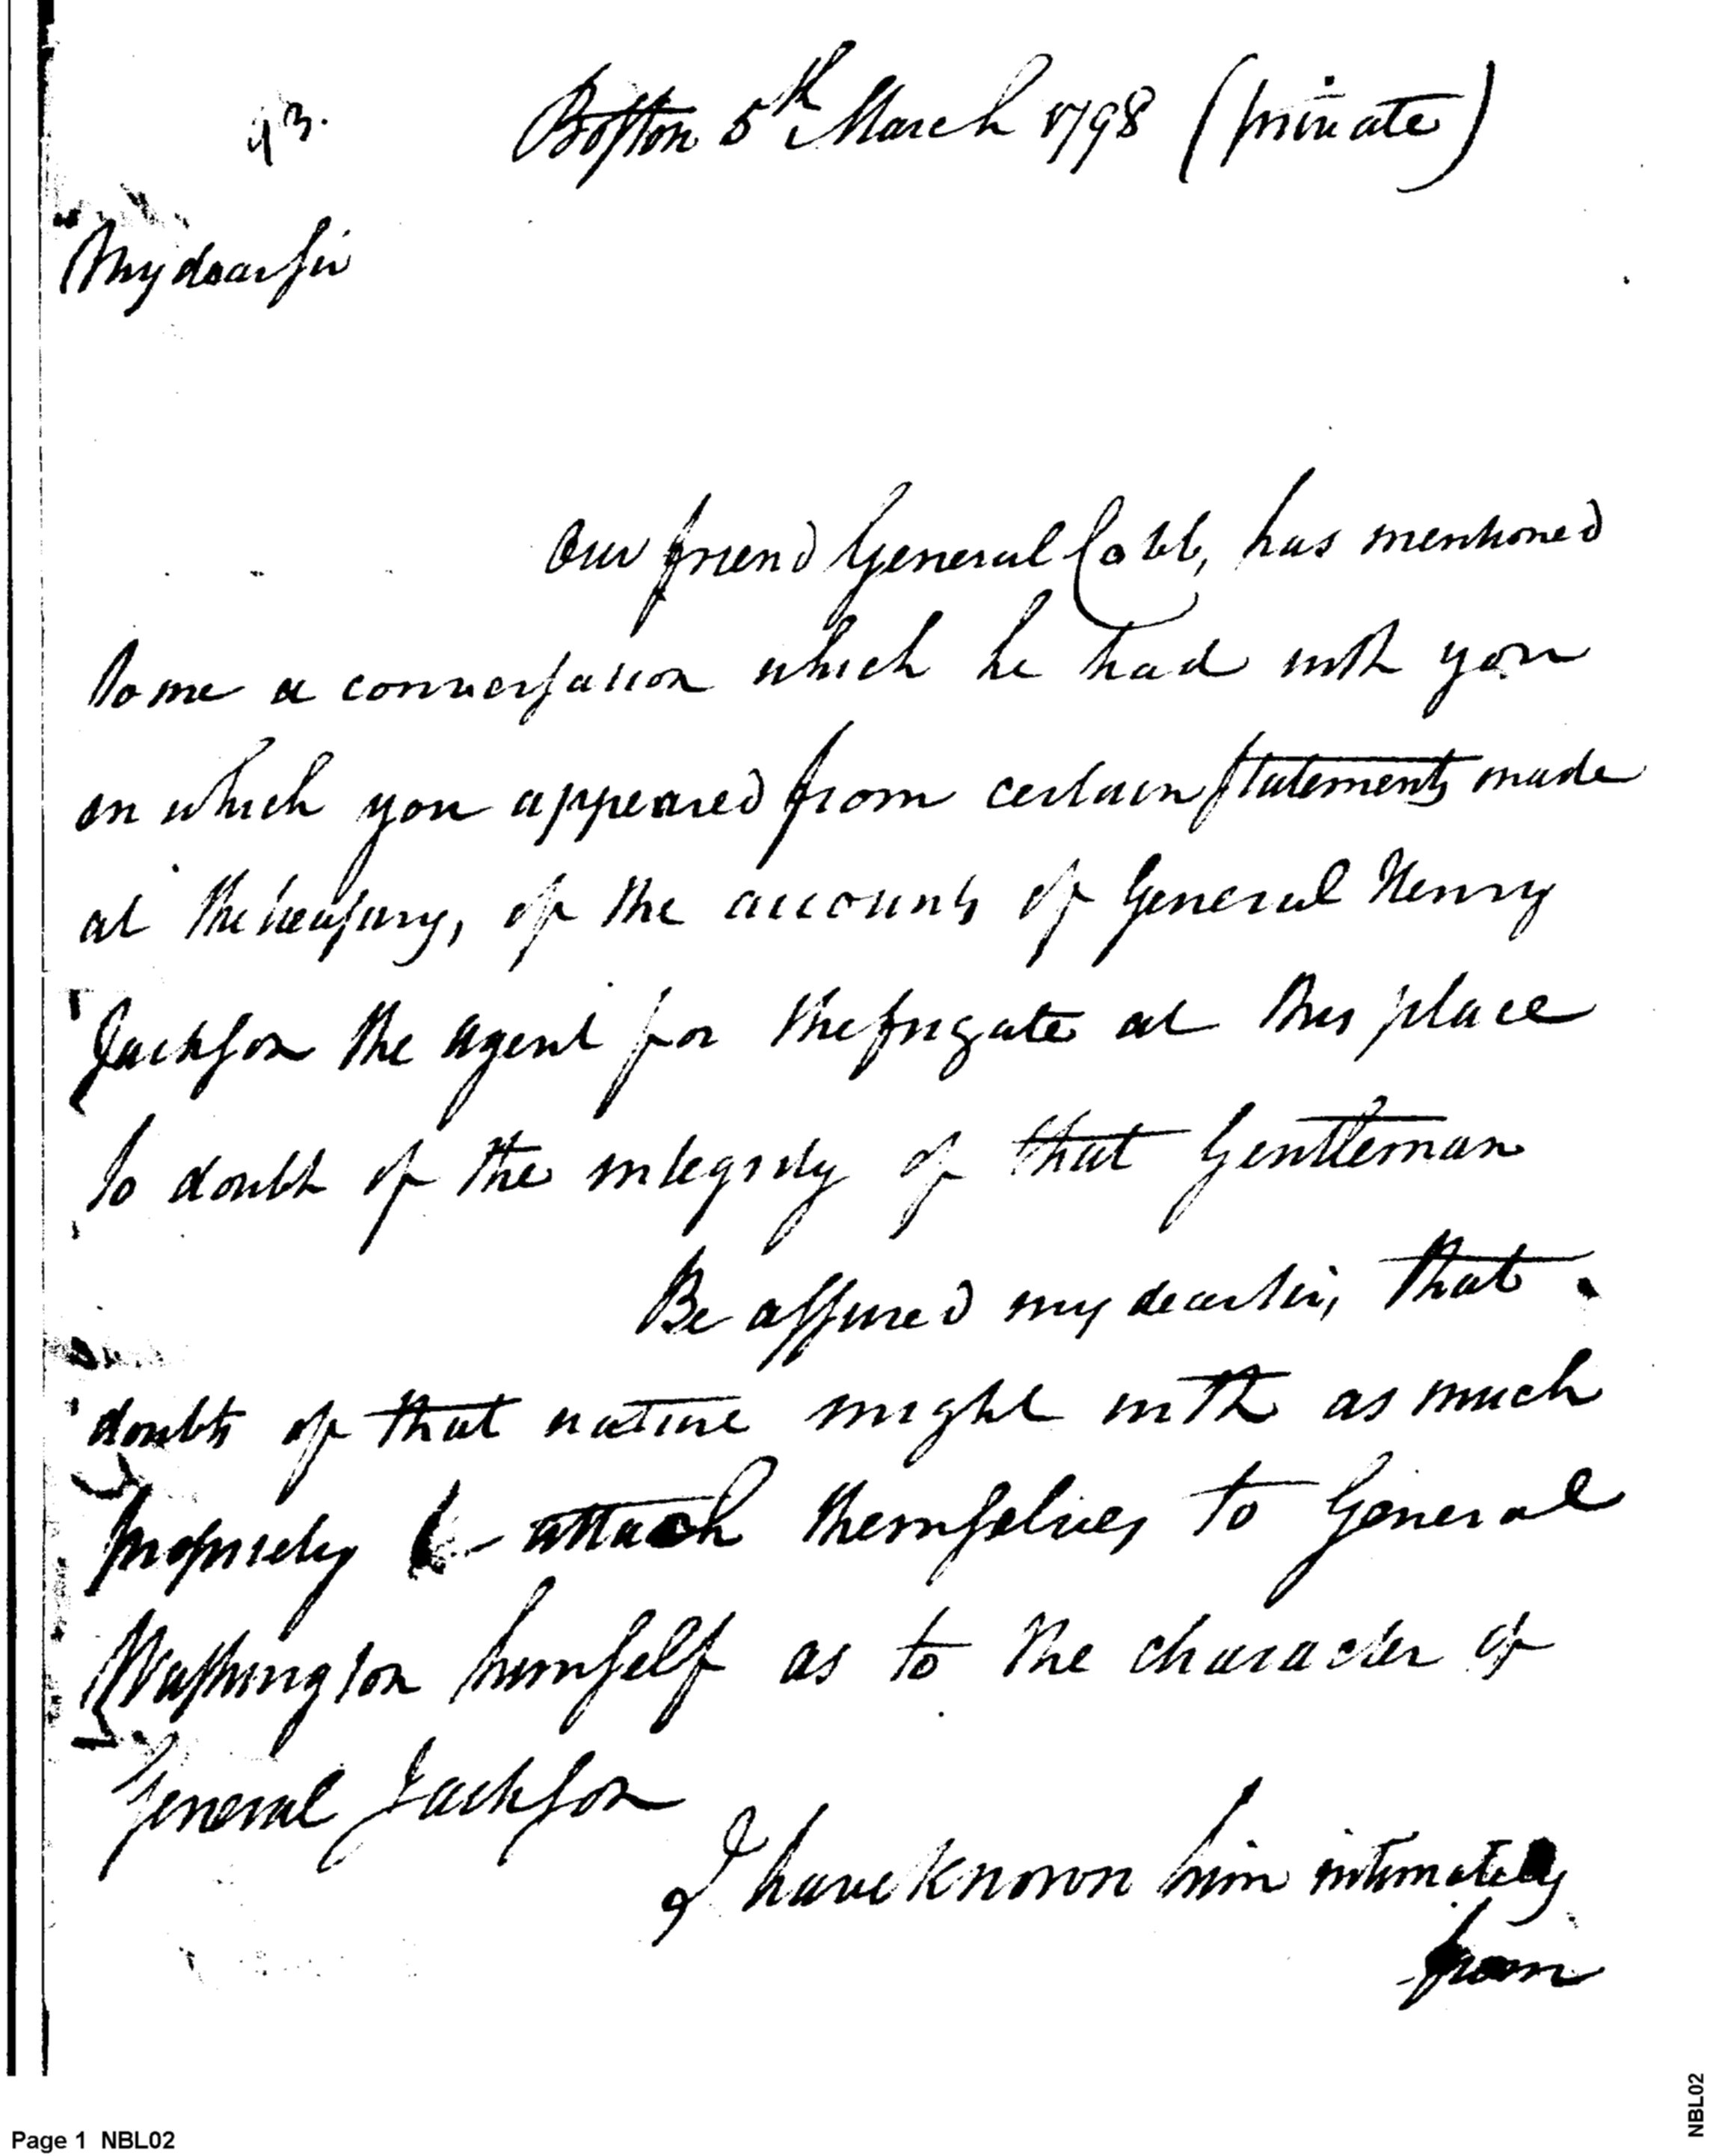 93.
Boston 5th March 1798 (private)
My dear sir
Our friend General Cobb, has mentioned
to me a conversation which he had with you
in which you appeared from certain statements made
at the treasury, of the accounts of General Henry
Jackson the agent for the frigate at this place
to doubt of the integrity of that Gentleman
Be assured my dear sir, that
doubts of that nature might with as much
propriety attach themselves to General
Washington himself as to the character of
General Jackson
I have known him intimately
from
Page 1 NBL02
NBL02